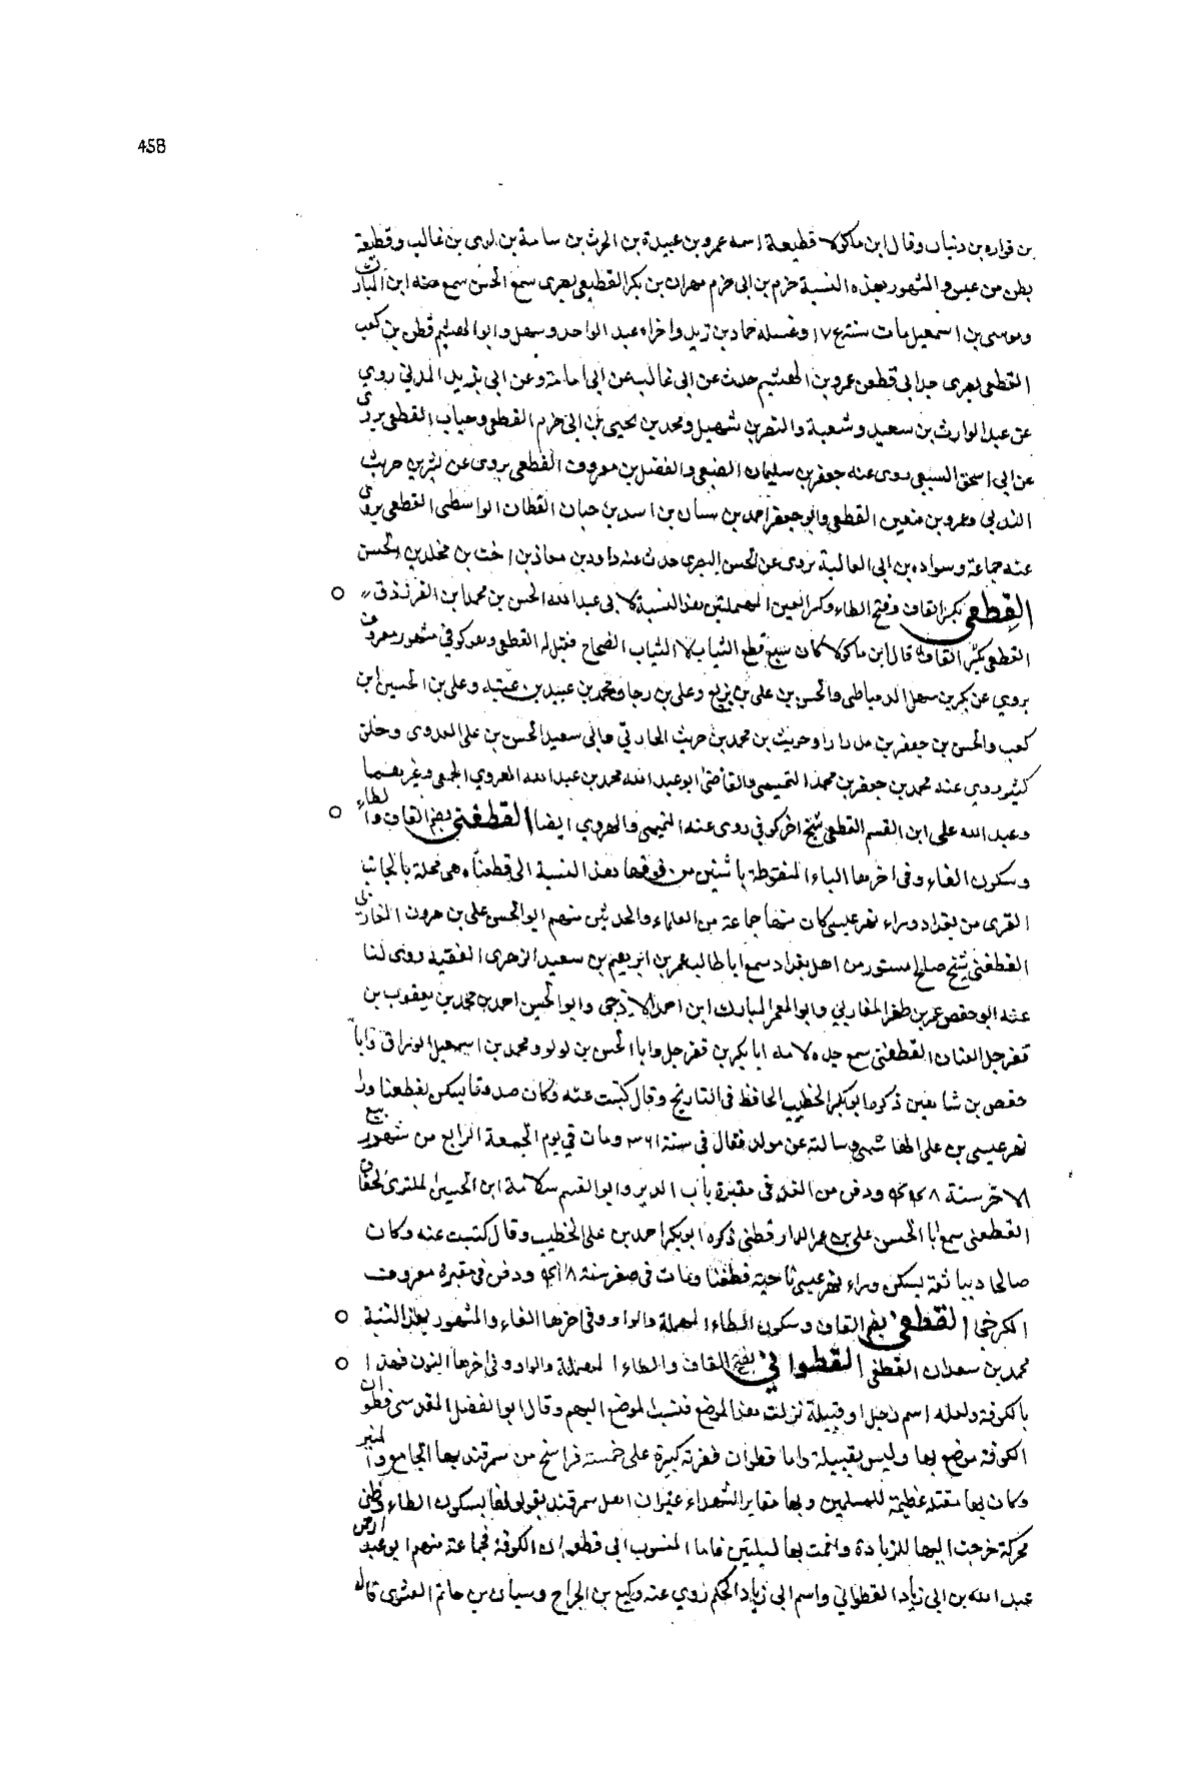 458
بن فزاره بن ذبيان وقال ابن ماكولا قطيعة اسمه عمرو بن عبيدة بن الحرث بن سامة بن لوى بن غالب وقطيعة
بطن من عبس والمشهور بهذه النسبة حزم بن ابى حزم مهران بن بكر القطيعى بصرى سمع الحسن سمع منه ابن المبارك
وموسى بن اسمعيل مات سنة ١٧٤ وغسله حماد بن زيد واخواه عبد الواحد وسهل وابو الهيثم قطن بن كعب
القطعى بصرى جد ابى قطن عمرو بن الهيثم حدث عن ابى غالب عن ابى امامة وعن ابى يزيد المدنى روى
عن عبد الوارث بن سعيد وشعبة والنضر بن شميل ومحمد بن يحيى بن ابى حزم القطعى وحباب القطعى يروى
عن ابى اسحق السبيعى روى عنه جعفر بن سليمان الضبعى والفضل بن معروف القطعى يروى عن بشر بن حرب
الندبى وعمرو بن القطعى وابو جعفر احمد بن سنان بن اسد بن حبان القطان الواسطى القطعى يروى
عنه جماعة وسواده بن ابى العالية يروى عن الحسن البصرى حدث عنه داود بن معاذ بن اخت بن مخلد بن الحسن
القِطَعى بكسر القاف وفتح الطاء وكسر العين المهملتين هذه النسبة لابى عبد الله الحسن بن محمد ابن الفرزدق
القطعى بكسر القاف قال ابن ماكولا كان يبيع قطع الثياب لا الثياب الصحاح فقيل له القطعى وهو كوفى مشهور معروف
يروى عن بكر بن سهل الدمياطى والحسن بن على بن بزيع وعلى بن رجا ومحمد بن عبيد بن عتبه وعلى بن الحسين ابن
كعب والحسن بن جعفر بن مدرارا وحريث بن محمد بن حريث الحارثى وابى سعيد الحسن بن على العدوى وخلق
كثير روى عنه محمد بن جعفر بن محمد التميمى والقاضى ابو عبد الله محمد بن عبد الله الهروى الجعفى وغيرهما
وعبد الله على ابن القسم القطعى شيخ اخر كوفى روى عنه التميمى والهروى ايضا القُطُفْتى بضم القاف والطاء
وسكون الفاء وفى اخرها التاء المنقوطة باثنتين من فوقها هذه النسبة الى قطفتا وهى محلة بالجانب
الغربى من بغداد وراء نهر عيسى كان منها جماعة من العلماء والمحدثين منهم ابو الحسن على بن هرون المغازلى
القطفتى شيخ صالح مستور من اهل بغداد سمع ابا طالب عمر بن ابراهيم بن سعيد الزهرى الفقيه روى لنا
عنه ابو حفص عمر بن ظفر المغازلى وابو المعمر المبارك ابن احمد الازجى وابو الحسين احمد بن محمد بن يعقوب بن
قفرجل القطفتى سمع جده لامه ابا بكر بن قفرجل وابا الحسن بن لولو ومحمد بن اسمعيل الوراق وابا
حفص بن شاهين ذكره ابو بكر الخطيب الحافظ فى التاريخ وقال كتبت عنه وكان صدوقا يسكن بقطفتا ورا
نهر عيسى بن على الهاشمى وسالته عن مولده فقال فى سنة ٣٦١ ومات فى يوم الجمعة الرابع من شهر ربيع
الاخر سنة ٤٤٨ ودفن من الغد فى مقبرة باب الدير وابو القسم سلامة ابن الحسين المقرى الخفاف
القطفتى سمع ابا الحسن على بن عمر الدارقطنى ذكره ابو بكر احمد بن على الخطيب وقال كتبت عنه وكان
صالحا دينا ثقة يسكن وراء نهر عيسى ناحية قطفتا ومات فى صفر سنة ودفن فى مقبره معروف
الكرخى القُطْفى بضم القاف وسكون الطاء المهملة والواو وفى اخرها الفاء والمشهور بهذه النسبة
محمد بن سعدان القطفى القَطَوانى بفتح القاف والطاء المهملة والواو وفى اخرها النون هذه ا
بالكوفة ولعله اسم رجل او قبيلة نزلت هذا الموضع فنسب الموضع اليهم وقال ابو الفضل المقدسى قطوان
الكوفة موضع بها وليس بقبيلة واما قطوان فقرية كبيرة على خمسة فراسخ من سمرقند بها الجامع والمنبر
وكان بها مقتلة عظيمة للمسلمين وبها مقابر الشهداء غير ان اهل سمرقند يقولونها بسكون الطاء
محركة خرجت اليها للزيارة واقمت بها ليلتين فاما المنسوب الى قطوان الكوفة فجماعة منهم ابو عبد الرحمن
عبد الله بن ابى زياد القطوانى واسم ابى زياد الحكم روى عنه وكيع بن الجراح وسيار بن حاتم العنزى قال